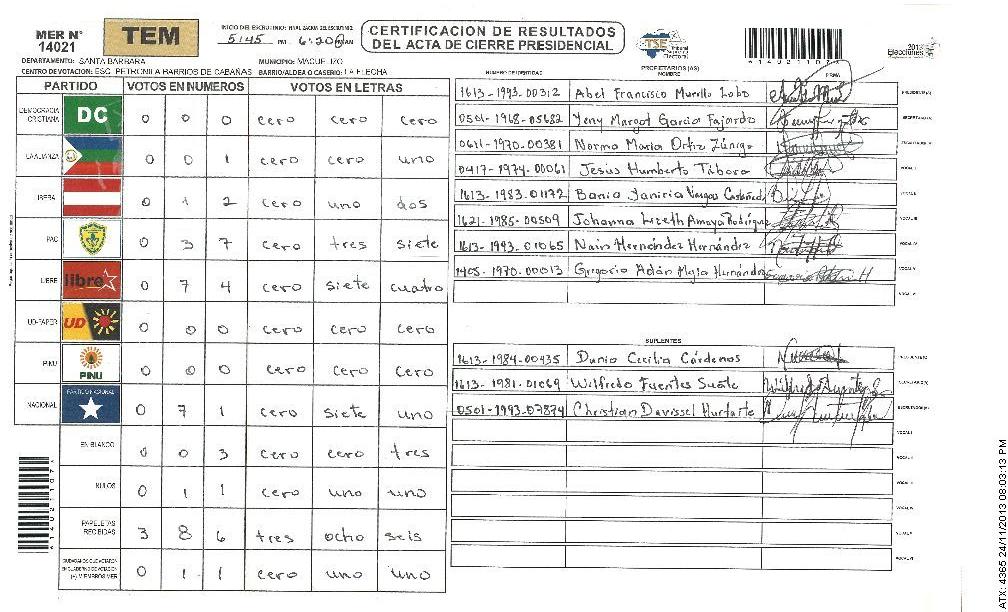 MER N° 14021
TEM
INICIO DEL ESCRUTINIO: FINALIZACION DEL ESCRUTINIO:
5:45 PM 6:20 AM
CERTIFICACION DE RESULTADOS
DEL ACTA DE CIERRE PRESIDENCIAL
TSE Tribunal Supremo Electoral
61402110741
Elecciones 2013
DEPARTAMENTO: SANTA BARBARA MUNICIPIO: MACUELIZO
CENTRO DE VOTACION: ESC. PETRONILA BARRIOS DE CABAÑAS BARRIO/ALDEA O CASERIO: LA FLECHA
PARTIDO VOTOS EN NUMEROS VOTOS EN LETRAS
DEMOCRACIA CRISTIANA DC 0 0 0 cero cero cero
LA ALIANZA 0 0 1 cero cero uno
0 1 2 cero uno dos
PAC 0 3 7 cero tres siete
LIBRE libre 0 7 4 cero siete cuatro
UD-FAPER UD 0 0 0 cero cero cero
PINU PINU 0 0 0 cero cero cero
NACIONAL PARTIDO NACIONAL 0 7 1 cero siete uno
EN BLANCO 0 0 3 cero cero tres
NULOS 0 1 1 cero uno uno
PAPELETAS RECIBIDAS 3 8 6 tres ocho seis
CIUDADANOS QUE VOTARON EN CUADERNO DE VOTACION (+) MIEMBROS MER 0 1 1 cero uno uno
NUMERO DE IDENTIDAD PROPIETARIOS (AS) NOMBRE FIRMA
1613-1993-00312 Abel Francisco Murillo Lobo PRESIDENTE(A)
0501-1968-05682 Yeny Margot Garcia Fajardo SECRETARIO(A)
0611-1970-00381 Norma Maria Ortiz Zúniga
0417-1974-00061 Jesus Humberto Tábora VOCAL I
1613-1983-01172 Bania Yaniria Vargas Castañed
1621-1985-00509 Johanna Lizeth Amaya Rodríguez VOCAL III
1613-1993-01065 Nain Hernández Hernández VOCAL IV
1405-1970-00013 Gregorio Adán Mejia Hernández VOCAL V
SUPLENTES
1613-1984-00435 Dunia Cecilia Cárdenas
1613-1981-01069 Wilfredo Fuentes Suate
0501-1993-07874 Christian Davissel Hurtarte
ATX: 4365 24/11/2013 08:03:13 PM